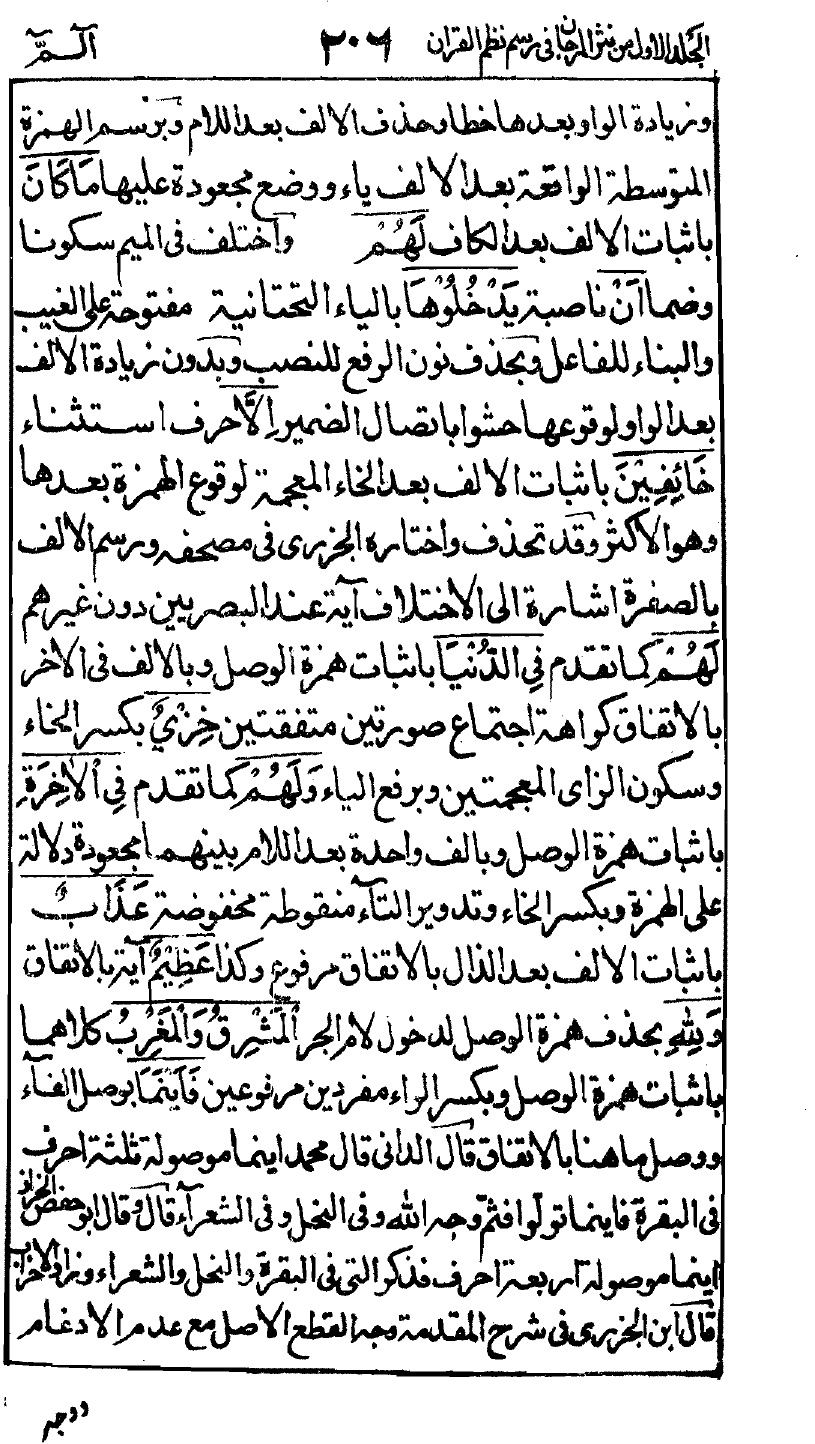 الجلد الاول من نثر المرجان فى رسم نظم القران ٢٠٦ الـمّ
وزيادة الواو بعدها خطا وحذف الالف بعد اللام وبرسم الهمزة
المتوسطة الواقعة بعد الالف ياء ووضع مجعودة عليها مَا كَانَ
باثبات الالف بعد الكاف لَهُمْ واختلف فى الميم سكونا
وضما اَنْ ناصبة يَدْخُلُوْهَا بالياء التحتانية مفتوحة على الغيب
والبناء للفاعل وبحذف نون الرفع للنصب وبدون زيادة الالف
بعد الواو لوقوعها حشوا باتصال الضمير اِلَّا حرف استثناء
خَائِفِيْنَ باثبات الالف بعد الخاء المعجمة لوقوع الهمزة بعدها
وهو الاكثر وقد تحذف واختاره الجزرى فى مصحفه ورسم الالف
بالصفرة اشارة الى الاختلاف آية عند البصريين دون غيرهم
لَهُمْ كما تقدم فِي الدُّنْيَا باثبات همزة الوصل وبالالف فى الاخر
بالاتفاق كراهة اجتماع صورتين متفقتين خِزْيٌ بكسر الخاء
وسكون الزاى المعجمتين وبرفع الياء وَلَهُمْ كما تقدم فِي الْاٰخِرَةِ
باثبات همزة الوصل وبالف واحدة بعد اللام بينهما مجعودة دلالة
على الهمزة وبكسر الخاء وتدوير التآء منقوطة مخفوضة عَذَابٌ
باثبات الالف بعد الذال بالاتفاق مرفوع وكذا عَظِيْمٌ آية بالاتفاق
وَلِلّٰهِ بحذف همزة الوصل لدخول لام الجر الْمَشْرِقُ وَالْمَغْرِبُ كلاهما
باثبات همزة الوصل وبكسر الراء مفردين مرفوعين فَاَيْنَمَا بوصل الفآء
ووصل ما هنا بالاتفاق قال الدانى قال محمد اينما موصولة ثلثة احرف
فى البقرة فاينما تولوا فثمّ وجه الله وفى النحل وفى الشعرآء قال وقال ابو حفص الخراز
اينما موصولة اربعة احرف فذكر التى فى البقرة والنحل والشعراء وزاد الاحزاب
قال ابن الجزرى فى شرح المقدمة وجه القطع الاصل مع عدم الادغام
ووجه